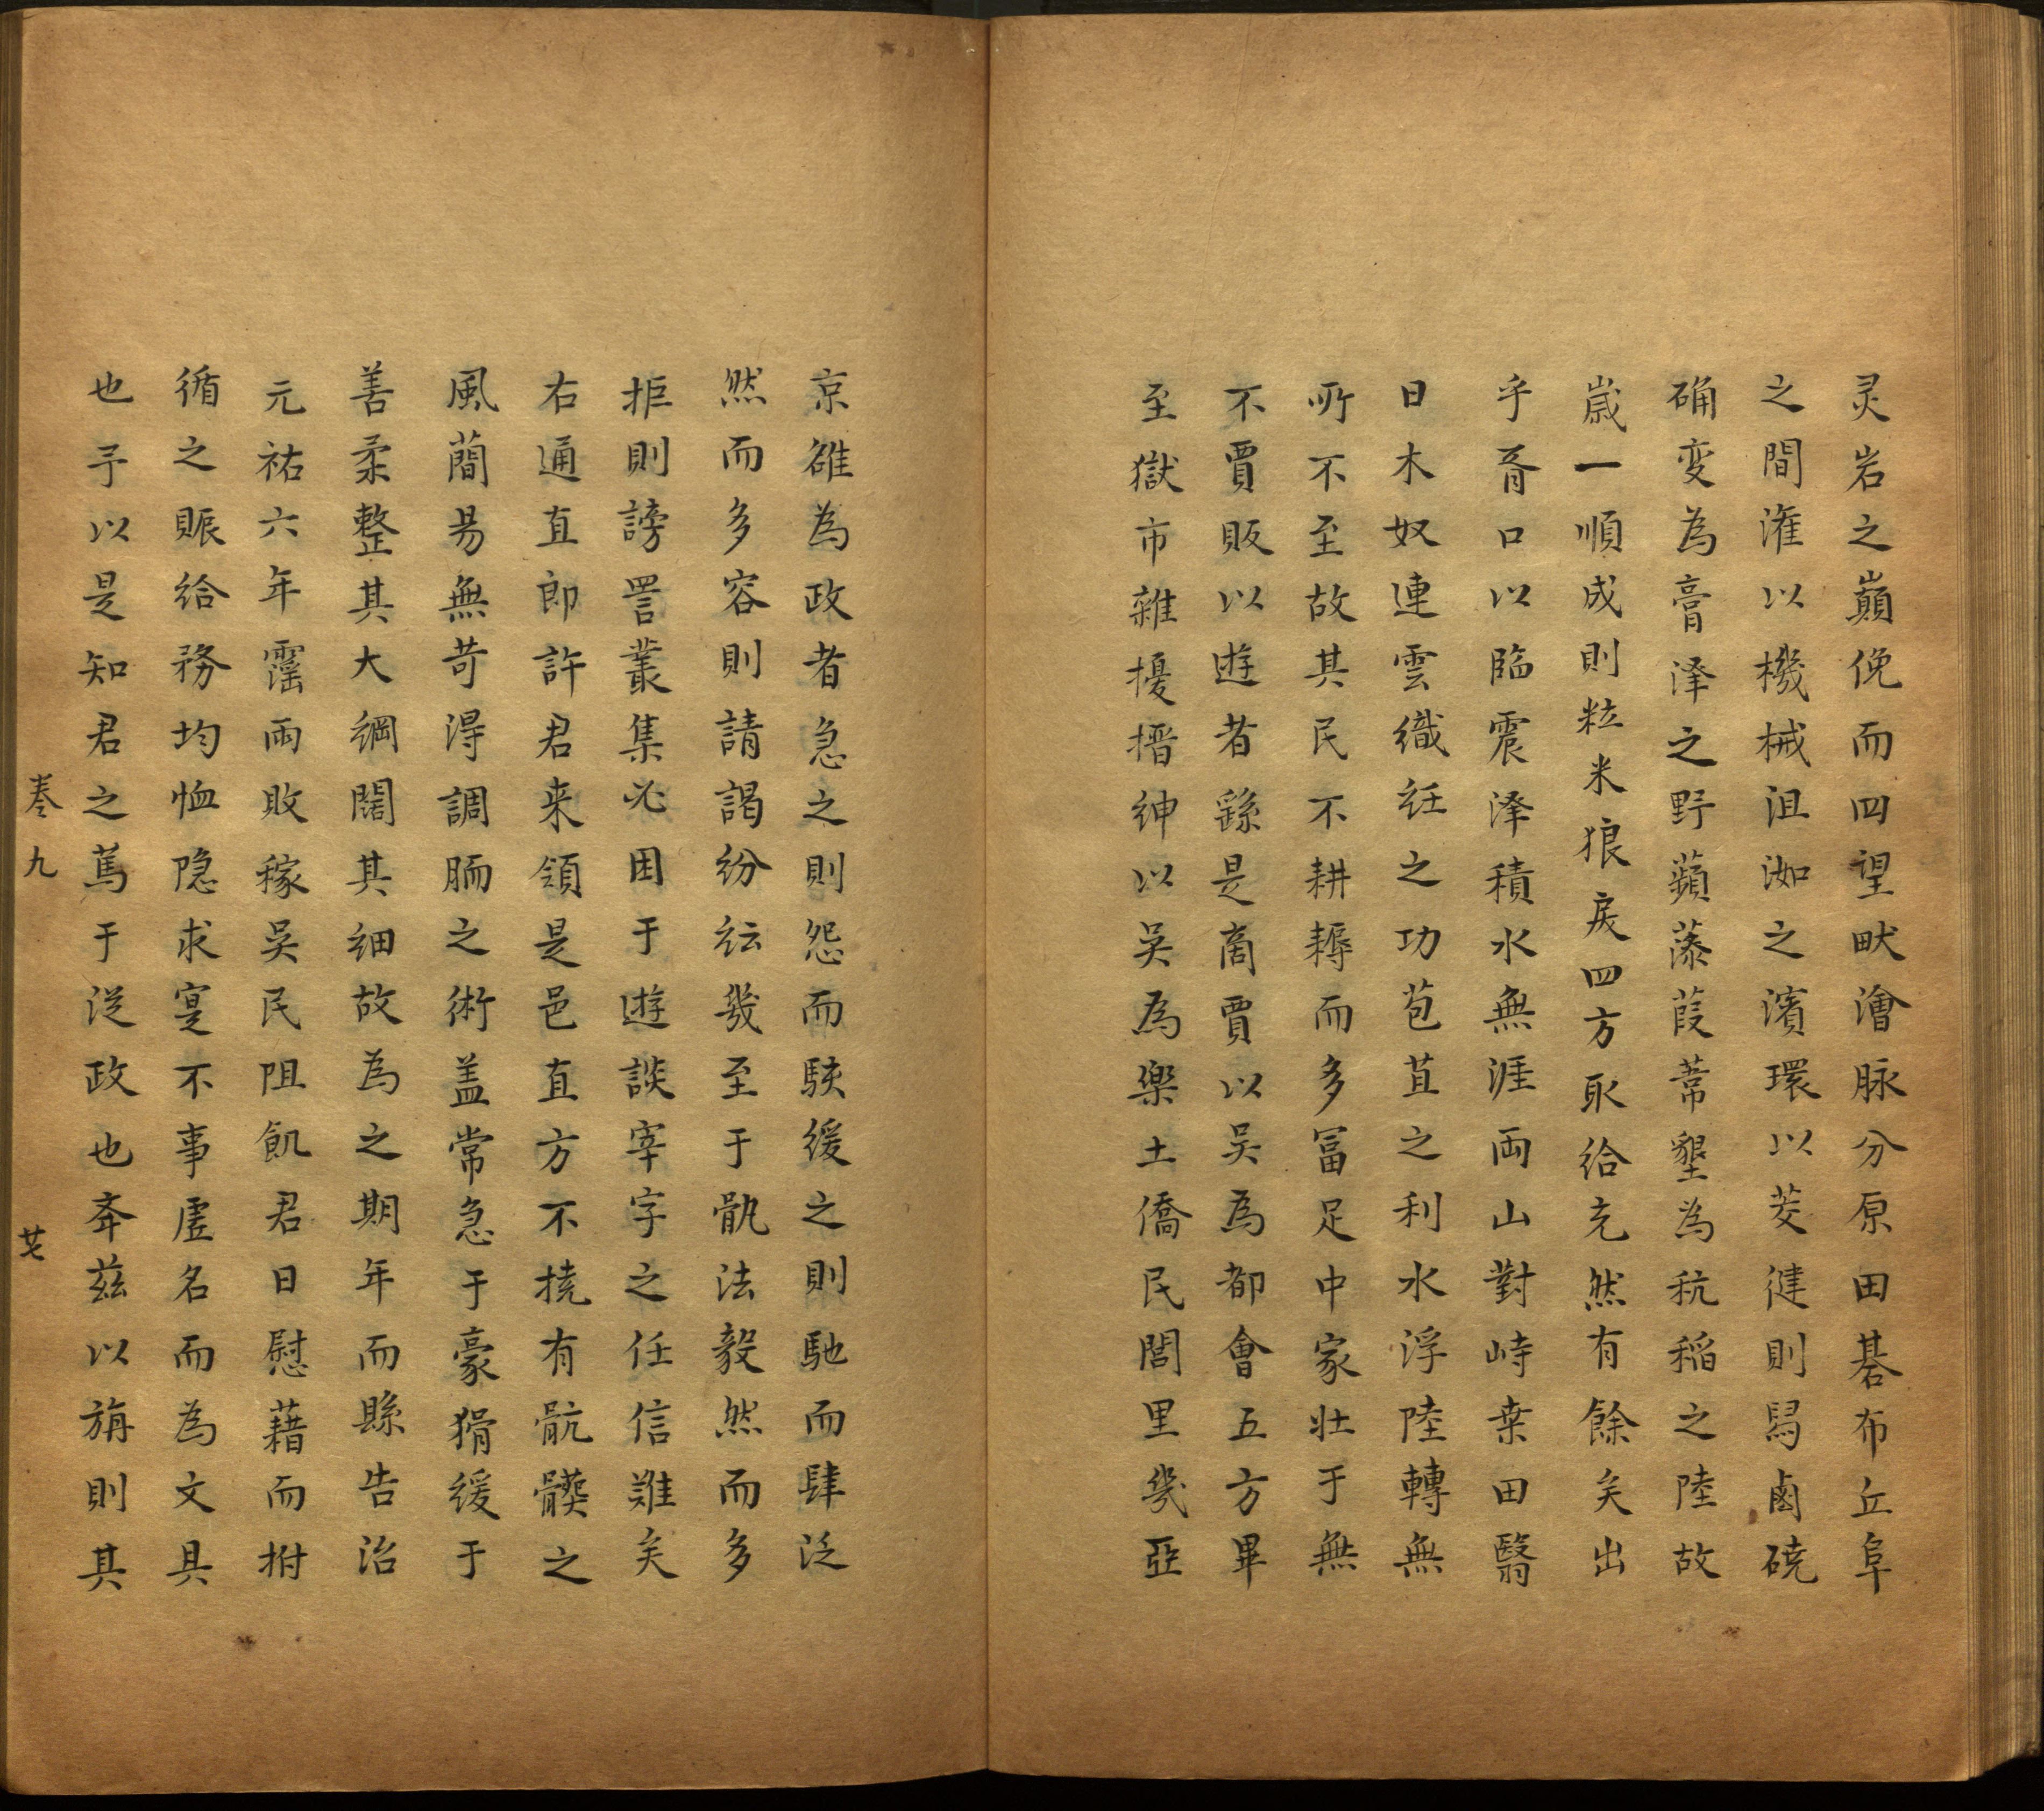 灵岩之巔俛而四望畎澮脉分原田碁布丘阜
之間漼以機械沮洳之濱環以茭揵則舄鹵磽
确变為膏泽之野蘋蔈葭葦墾為秔稲之陸故
歳一順成則粒米狼戾四方取給充然有餘矣出
乎胥口以臨震泽積水無涯両山對峙桒田翳
日木奴連雲織紝之功苞苴之利水浮陸轉無
所不至故其民不耕耨而多冨足中家壮于無
不賈販以遊者繇是商賈以吴為都會五方畢
至獄市雜擾搢紳以吴為樂土僑民閭里幾亞
京雒為政者急之則怨而駭缓之則馳而肆泛
然而多容則請謁紛紜幾至于骩法毅然而多
拒則謗詈叢集必困于遊談宰字之任信難矣
右通直郎許君来領是邑直方不撓有骯髒之
風蕳易無苛淂調胹之術盖常急于豪猾缓于
善柔整其大綱闊其细故為之期年而縣告治
元祐六年霪雨敗稼吴民阻飢君日慰藉而拊
循之賑給務均恤隐求寔不事虛名而為文具
也予以是知君之篤于従政也夲兹以旃則其
卷九
艽